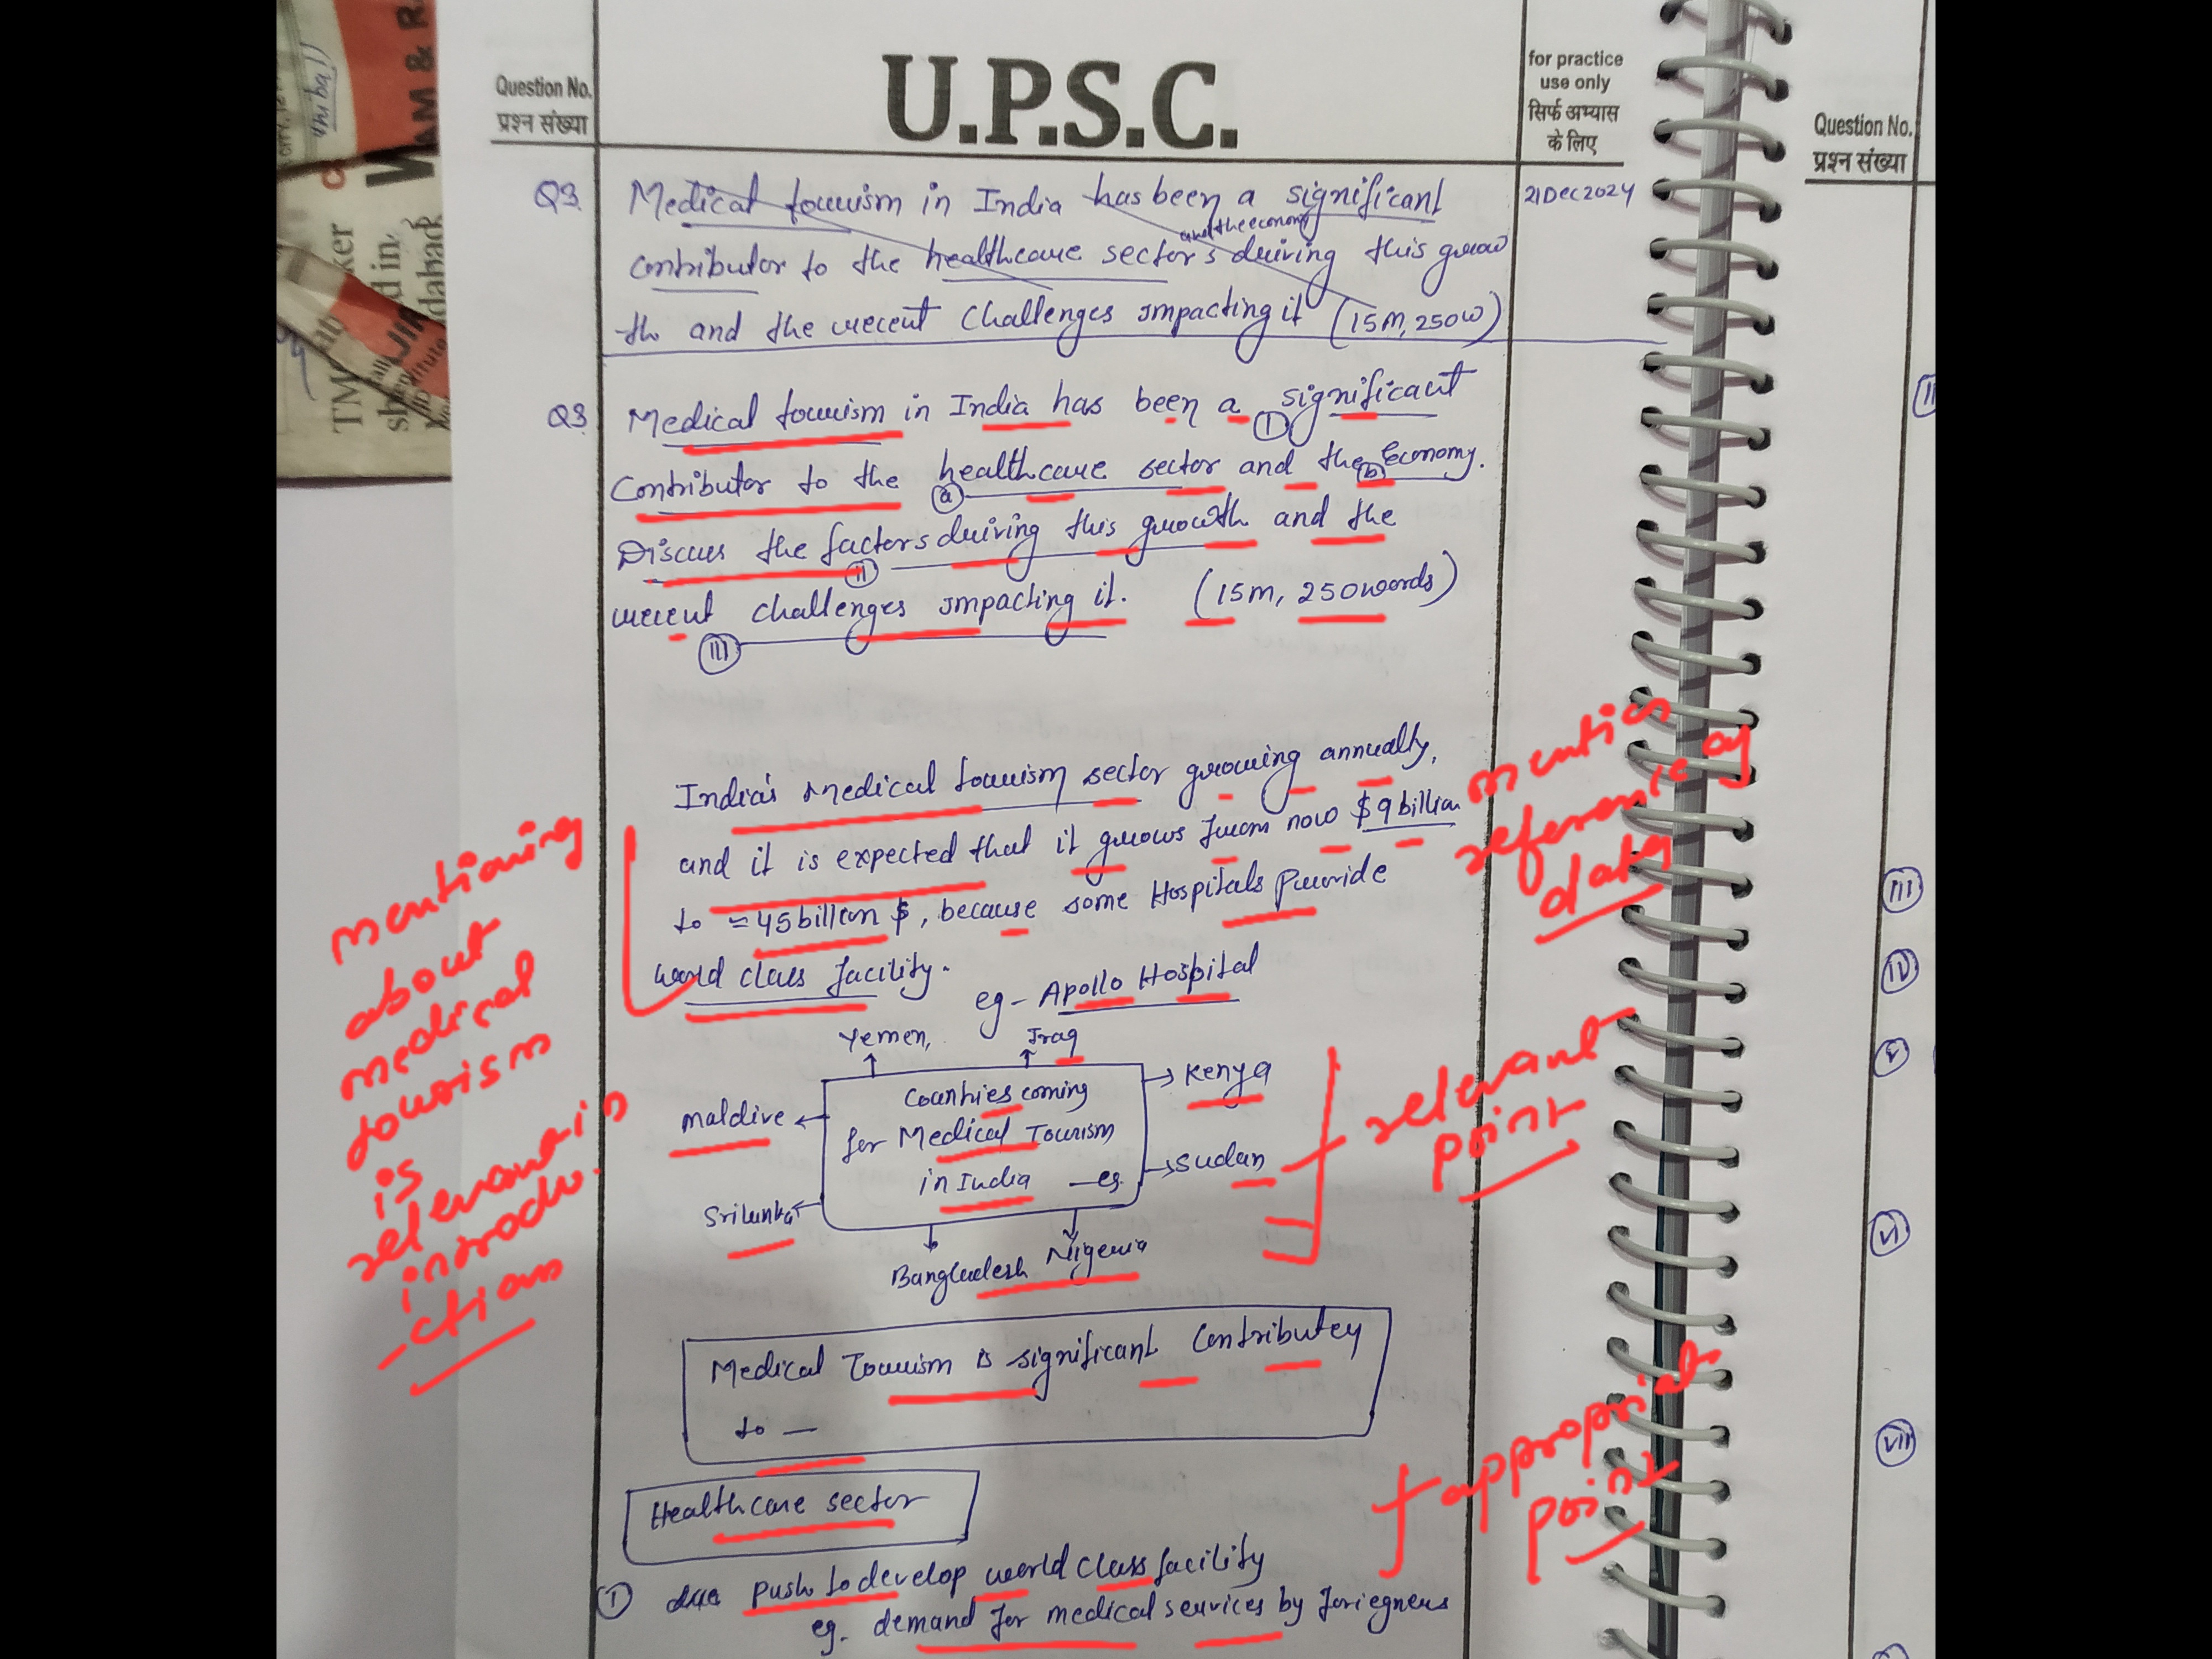 U.P.S.C.
Question No.
प्रश्न संख्या
for practice
use only
सिर्फ अभ्यास
के लिए
Question No.
प्रश्न संख्या
Q3 Medical tourism in India has been a significant
21 Dec 2024
and the economy
contributor to the healthcare sector s driving this grow
th and the recent challenges impacting it (15M, 250W)
Q3 Medical tourism in India has been a significant
I
Contributor to the healthcare sector and the Economy.
a b
Discuss the factors driving this growth and the
II
recent challenges impacting it. (15M, 250 words)
III
India's Medical tourism sector growing annually,
and it is expected that it grows from now $9 billion
to ≈ 45 billion $, because some Hospitals provide
world class facility.
eg - Apollo Hospital
mention
reference of
data
mentioning
about
medical
tourism
is
relevant in
introdu-
-ction
Yemen, Iraq
Countries coming
for Medical Tourism
in India — eg.
Kenya
Sudan
Maldive
Srilunka
Bangladesh Nigeria
relevant
point
Medical Tourism is significant Contributey
to —
Healthcare sector
appropriate
point
I due push to develop world class facility
eg. demand for medical services by foriegners
TM
WAM & R
II
III
IV
V
VI
VII